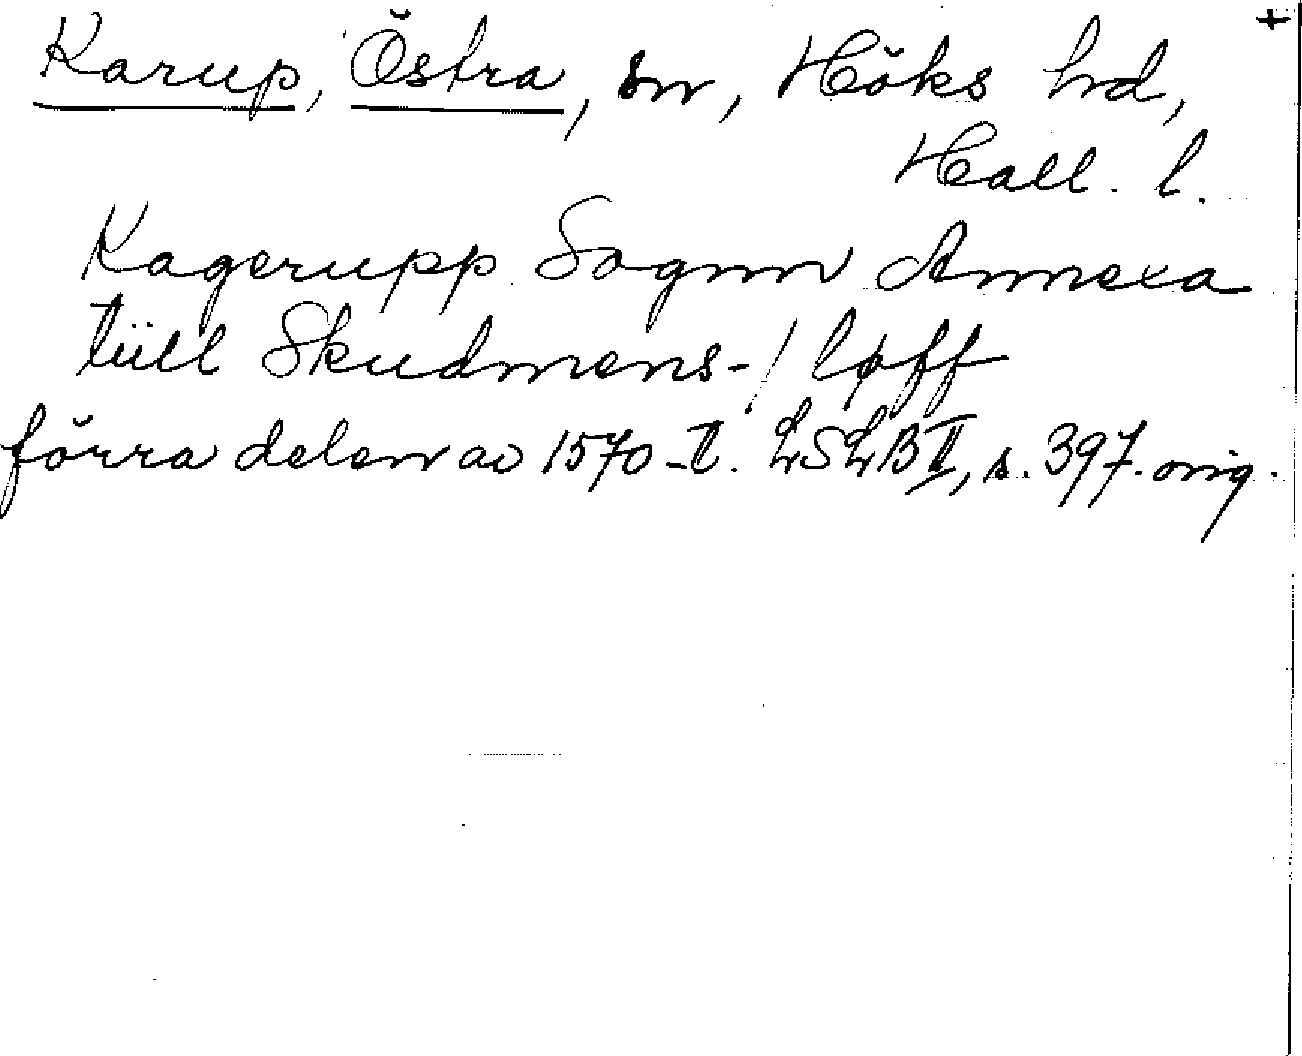 +
Karup, Östra, sn, Höks hd,
Hall. l.
Kagerupp Sognn Annexa
tüll Skudmens-/løff
förra delen av 1570-t. LSLB II, s. 397. orig.